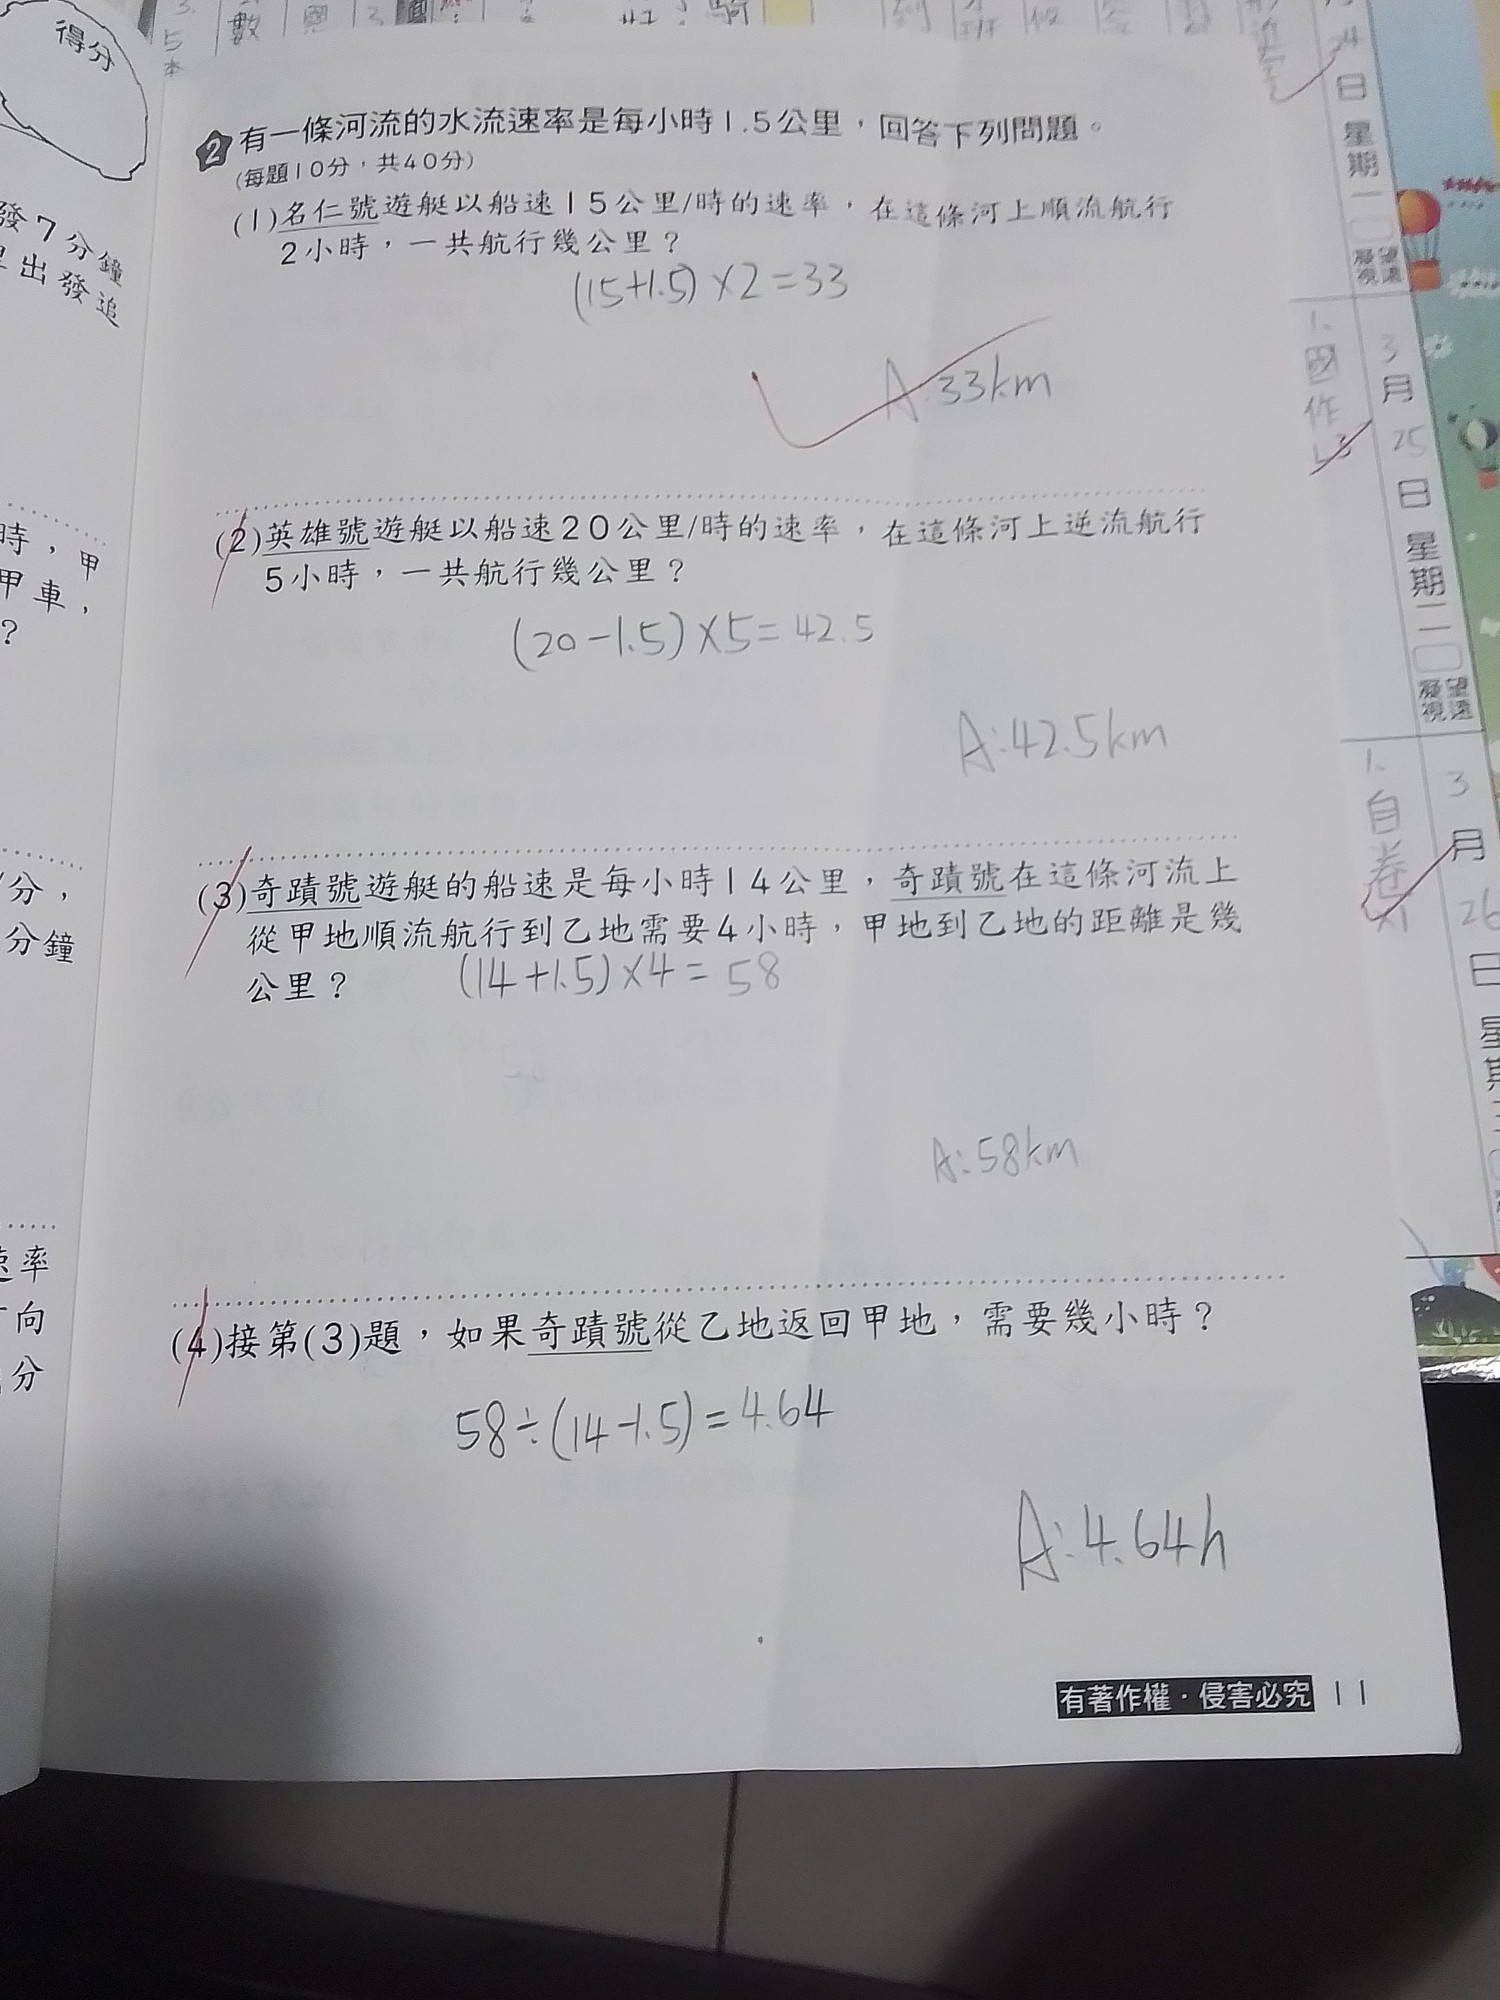 得分
發7分鐘
出發追
時，甲
甲車，
？
分，
分鐘
速率
向
分
2 有一條河流的水流速率是每小時1.5公里，回答下列問題。
(每題10分，共40分)
(1)名仁號遊艇以船速15公里/時的速率，在這條河上順流航行
2小時，一共航行幾公里？
(15+1.5)×2=33
A:33km
(2)英雄號遊艇以船速20公里/時的速率，在這條河上逆流航行
5小時，一共航行幾公里？
(20-1.5)×5=42.5
A:42.5km
(3)奇蹟號遊艇的船速是每小時14公里，奇蹟號在這條河流上
從甲地順流航行到乙地需要4小時，甲地到乙地的距離是幾
公里？
(14+1.5)×4=58
A:58km
(4)接第(3)題，如果奇蹟號從乙地返回甲地，需要幾小時？
58÷(14-1.5)=4.64
A:4.64h
有著作權·侵害必究 11
日星期一
凝視望遠
3月25日星期二
凝視望遠
1.國作L3
3月26日星期三
1.自卷×1